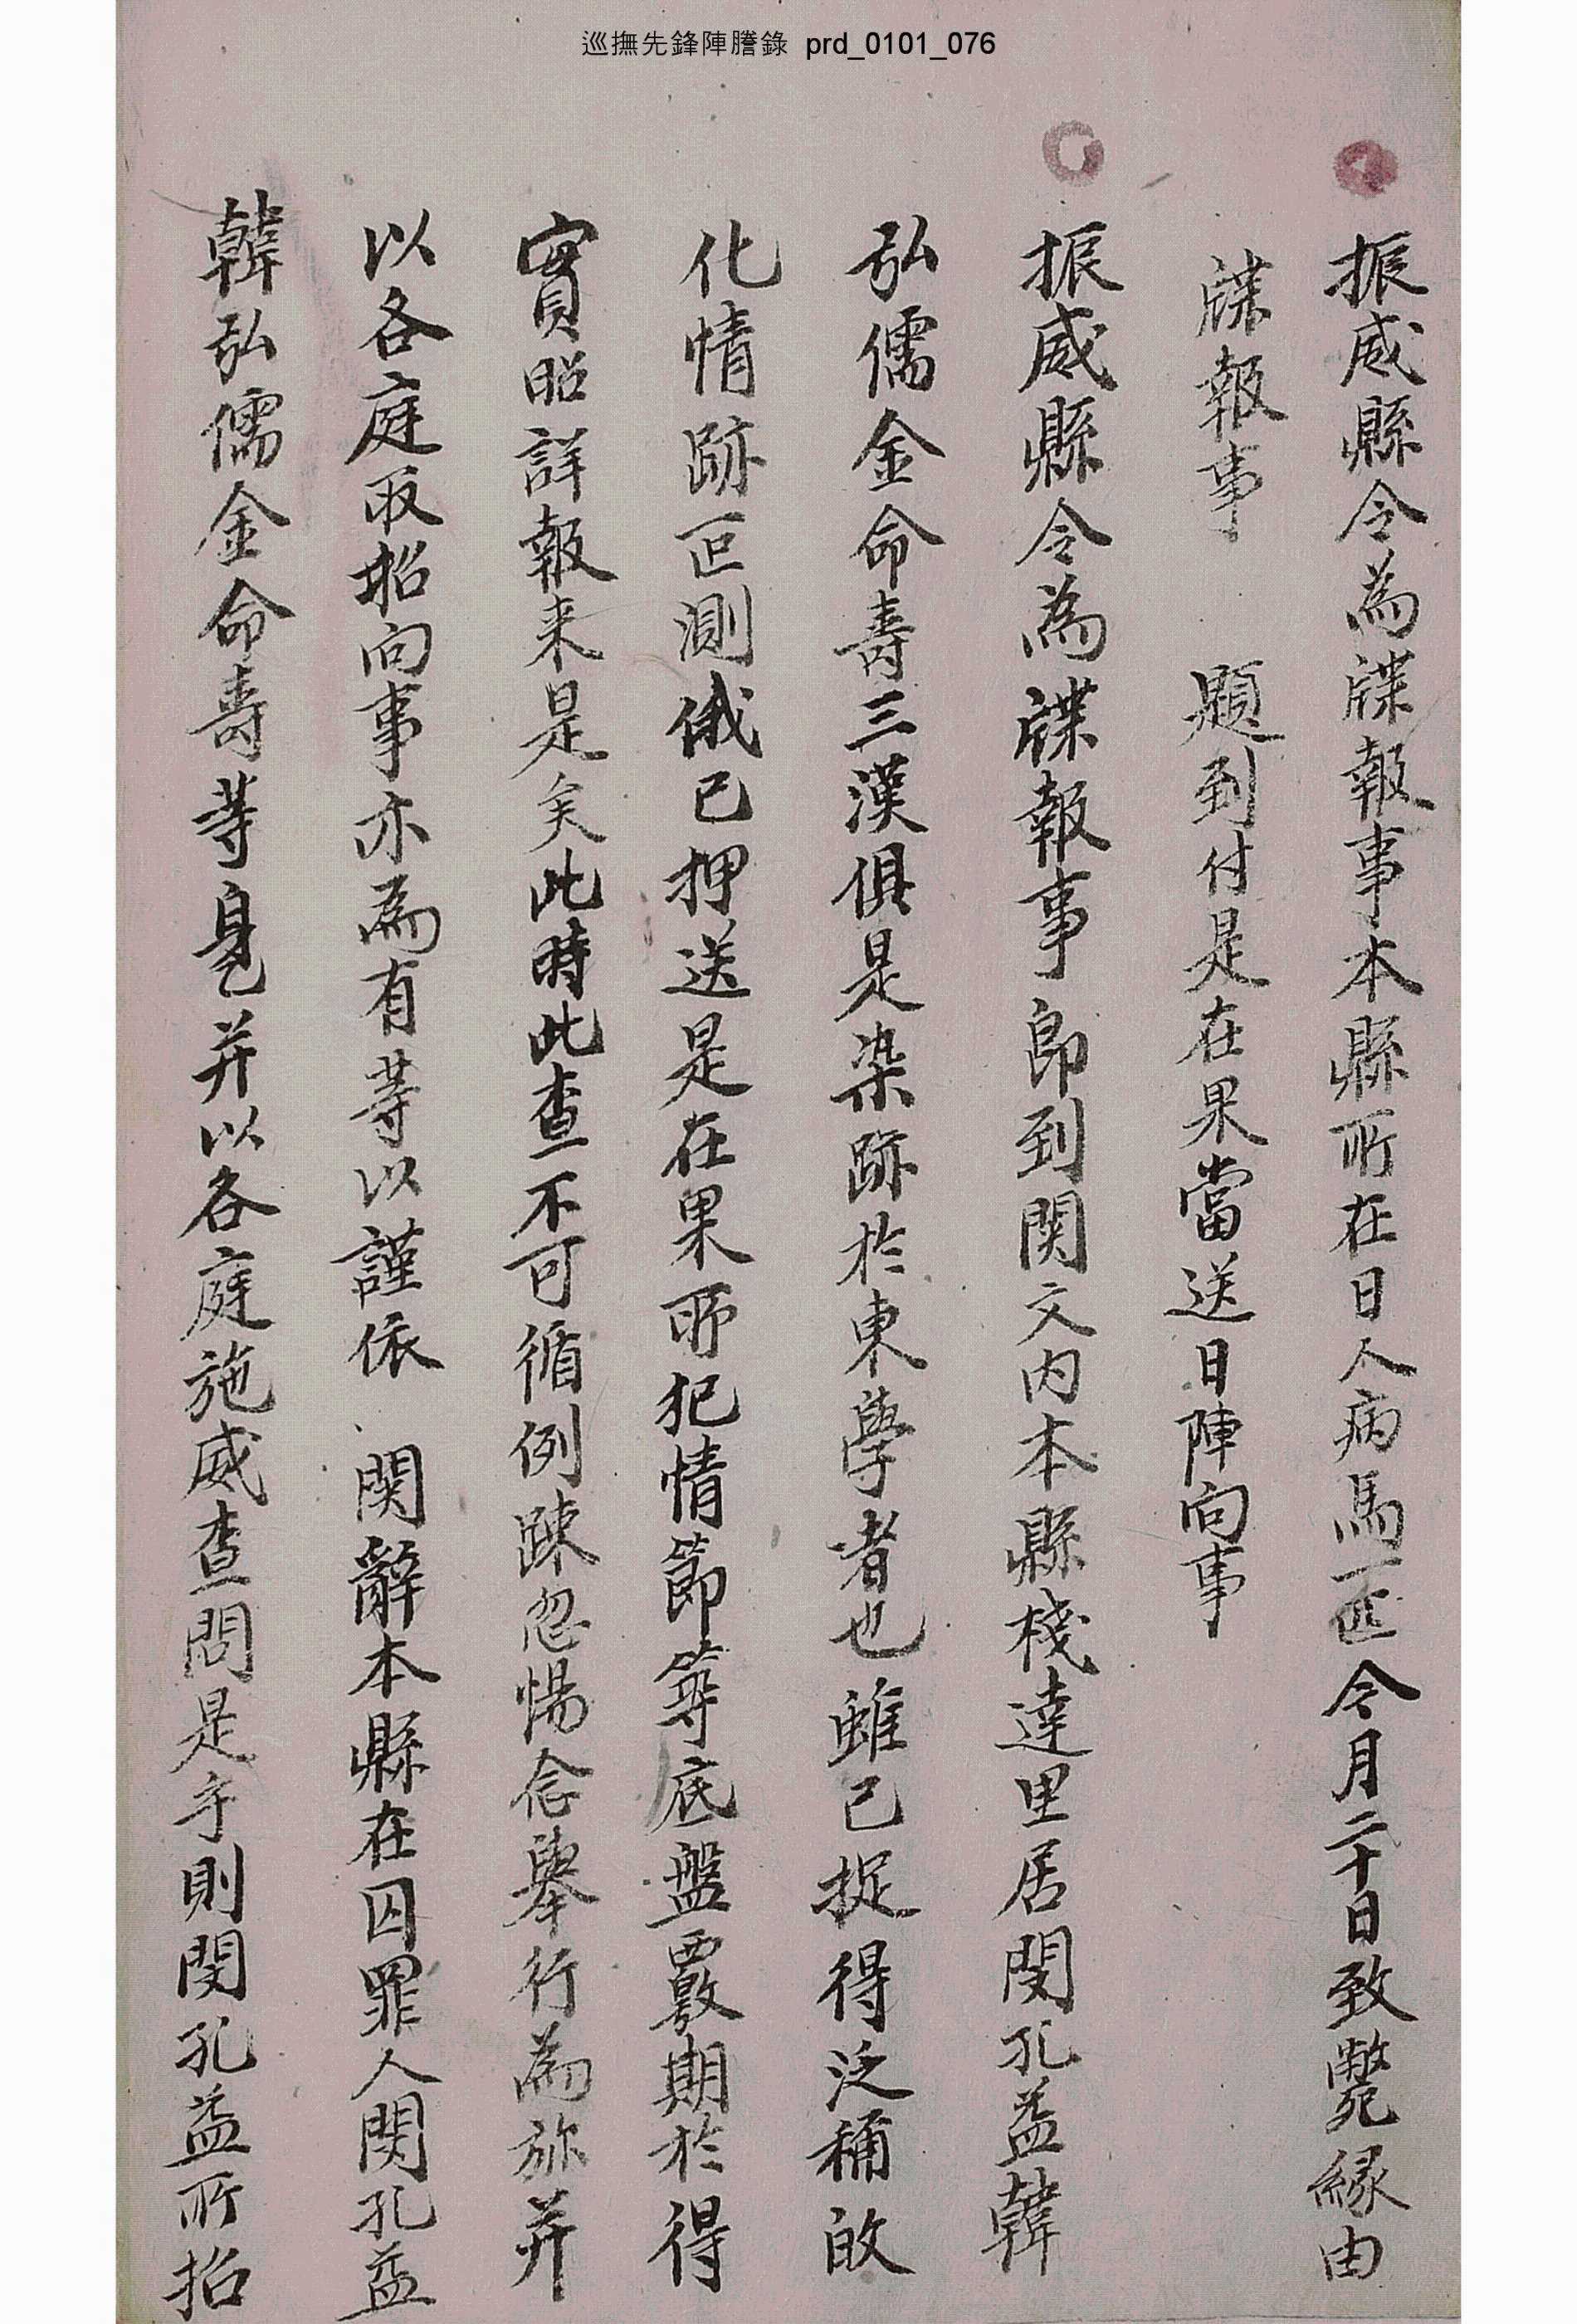 巡撫先鋒陣謄錄 prd_0101_076
振威縣令為牒報事本縣所在日人病馬一匹今月二十日致斃緣由
牒報事 題到付是在果當送日陣向事
振威縣令為牒報事卽到関文內本縣棧達里居閔孔益韓
弘儒金命壽三漢俱是染跡於東學者也雖已捉得泛稱改
化情跡叵測俄已押送是在果所犯情節等底盤覈期於得
實昭詳報来是矣此時此查不可循例踈忽惕念舉行為旀并
以各庭取招向事亦為有等以謹依 関辭本縣在囚罪人閔孔益
韓弘儒金命壽等身乙并以各庭施威查問是乎則閔孔益所招